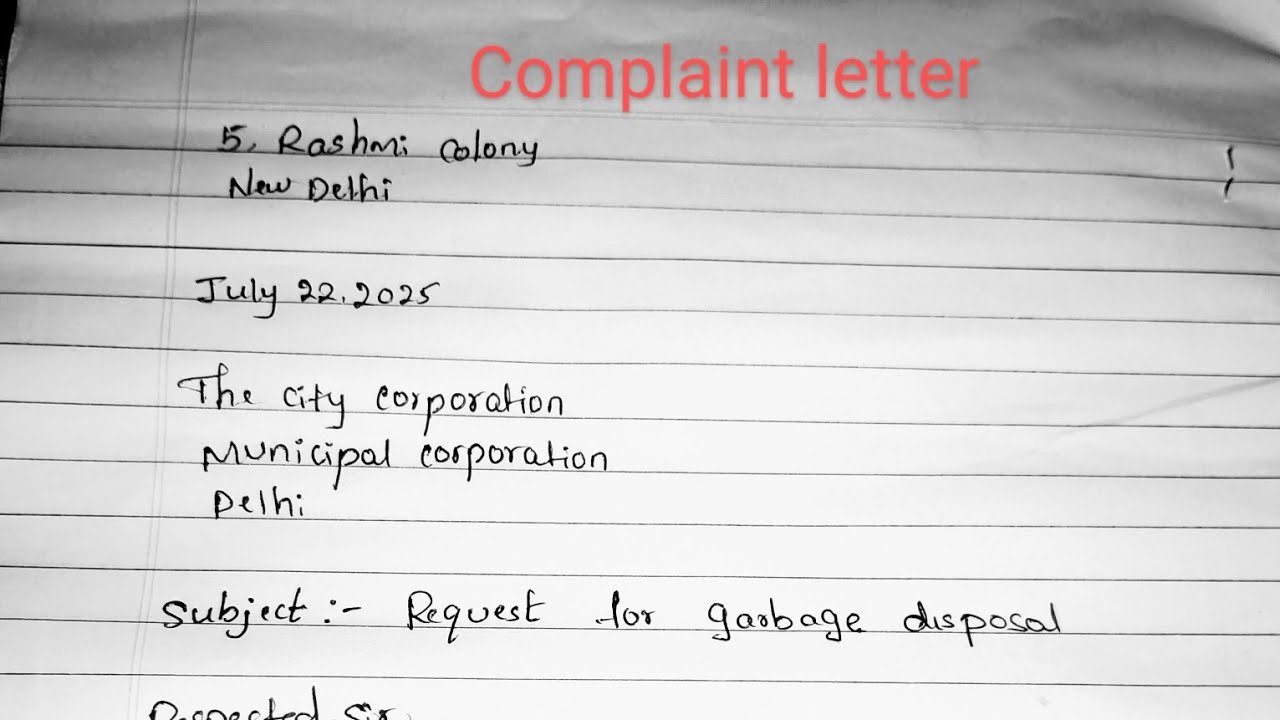 Complaint letter
5, Rashmi colony
New Delhi
July 22.2025
The city corporation
Municipal corporation
Delhi
Subject :- Request for garbage disposal
Respected sir,